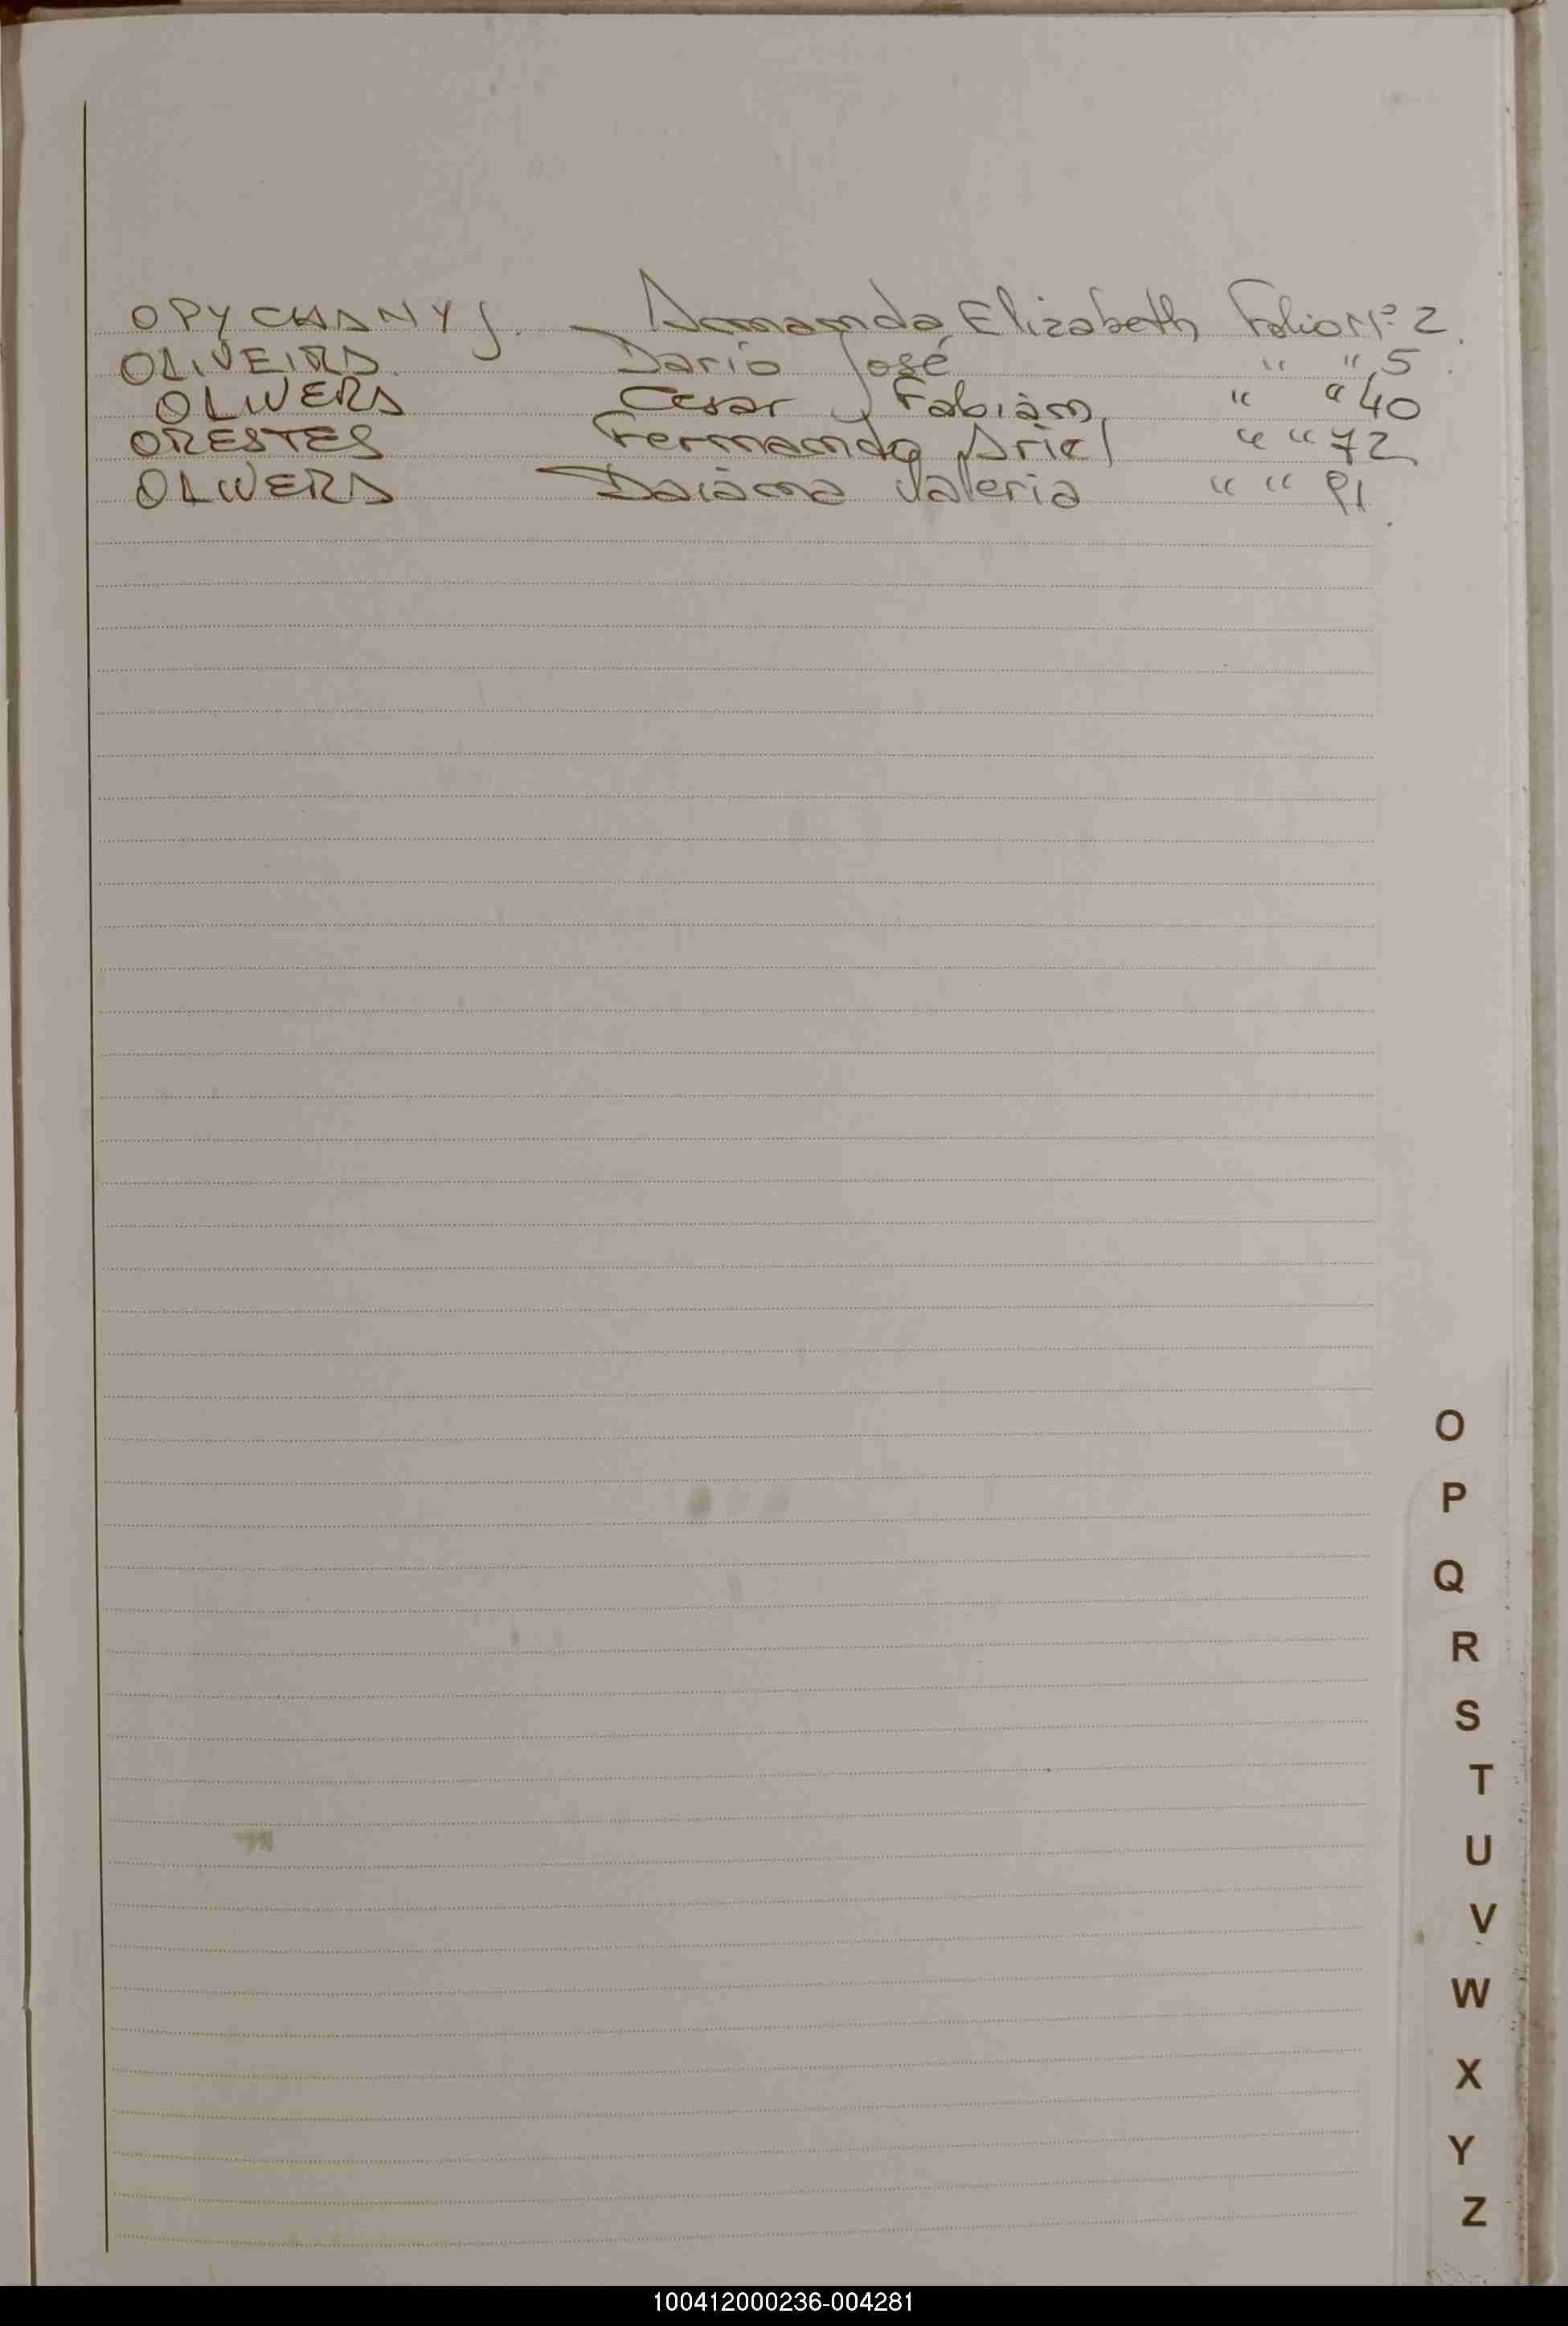 OPYCHANYJ. Amanda Elizabeth Folio Nº 2.
OLIVEIRA. Dario José " " 5.
OLIVERA Cesar Fabián " " 40
ORESTES Fernando Ariel " " 72
OLIVERA Daiàna Valeria " " 91.
O
P
Q
R
S
T
U
V
W
X
Y
Z
100412000236-004281